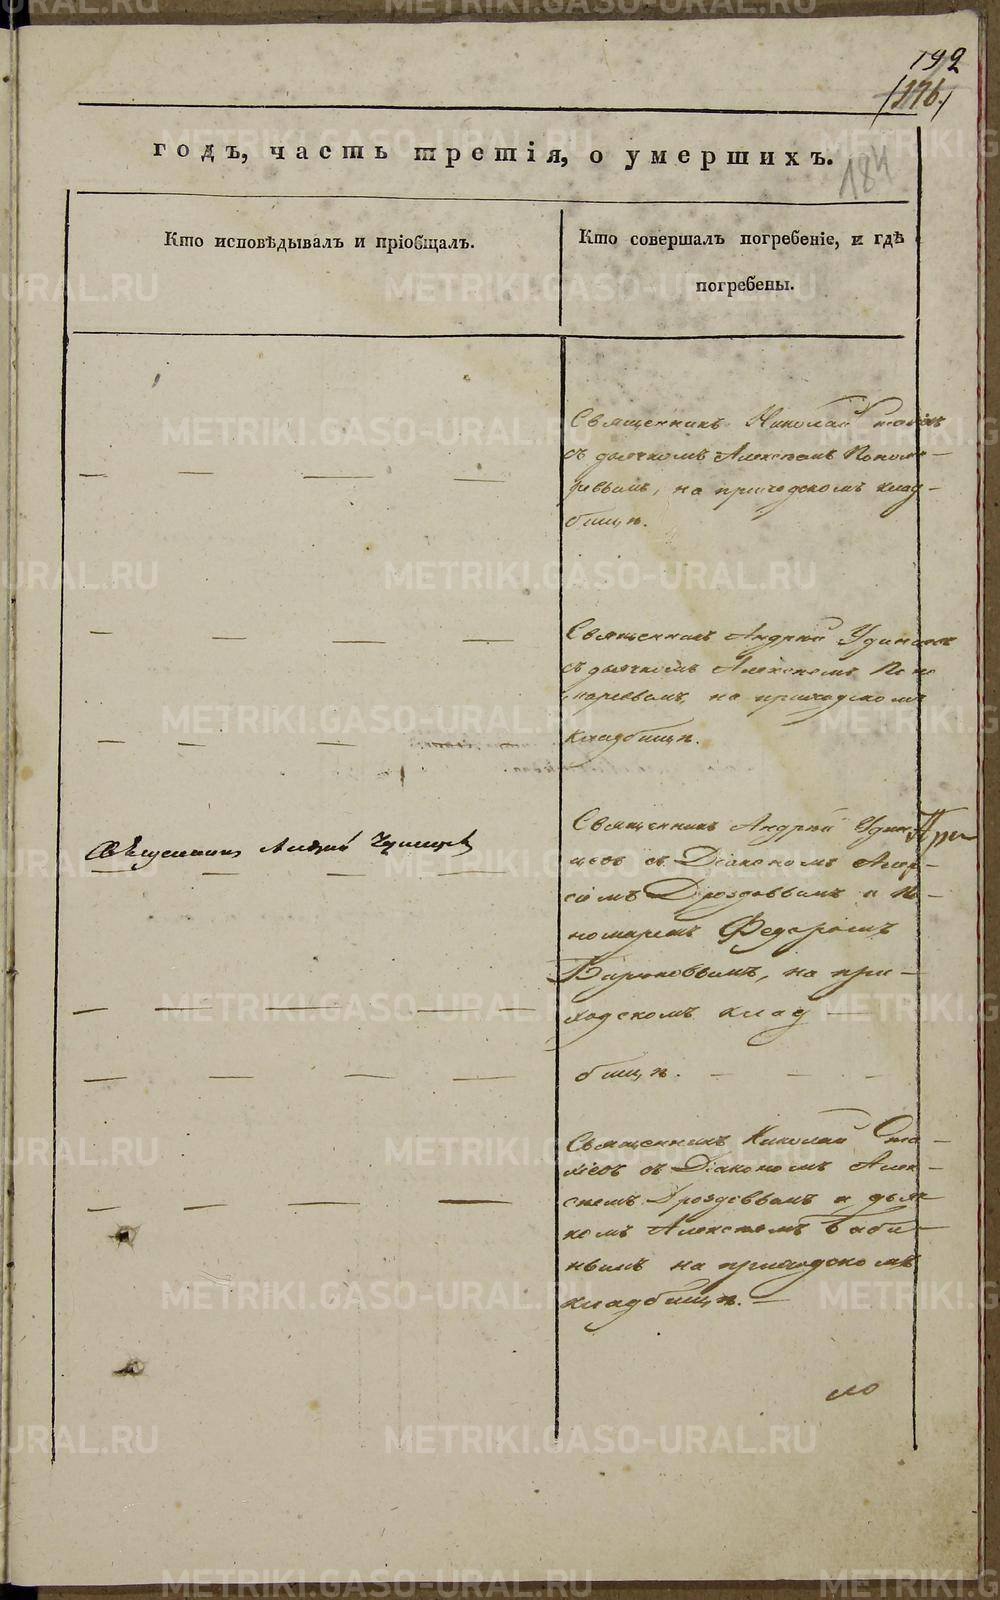 192
176.
184
годъ, часть третія, о умершихъ.
Кто исповѣдывалъ и пріобщалъ.
Кто совершалъ погребеніе, и гдѣ
погребены.
Священникъ Николай
съ дьячкомъ Алексѣемъ Поном-
ревымъ, на приходскомъ клад-
бищѣ.
Священникъ Андрей Удинцовъ
съ дьячкомъ Алексѣемъ Поно
маревымъ, на приходскомъ
кладбищѣ.
Священникъ Андрей Удинцовъ
Священникъ Андрей Удин
При
цовъ съ Діакономъ Алек-
сіемъ Дроздовымъ и По-
номаремъ Федоромъ
Бирюковымъ, на при-
ходскомъ клад
бищѣ.
Священникъ Николай
съ Діакономъ Алек-
сѣемъ Дроздовымъ и дьяч
комъ Алексѣемъ Баби-
нымъ на приходскомъ
кладбищѣ.
METRIKI.GASO-URAL.RU